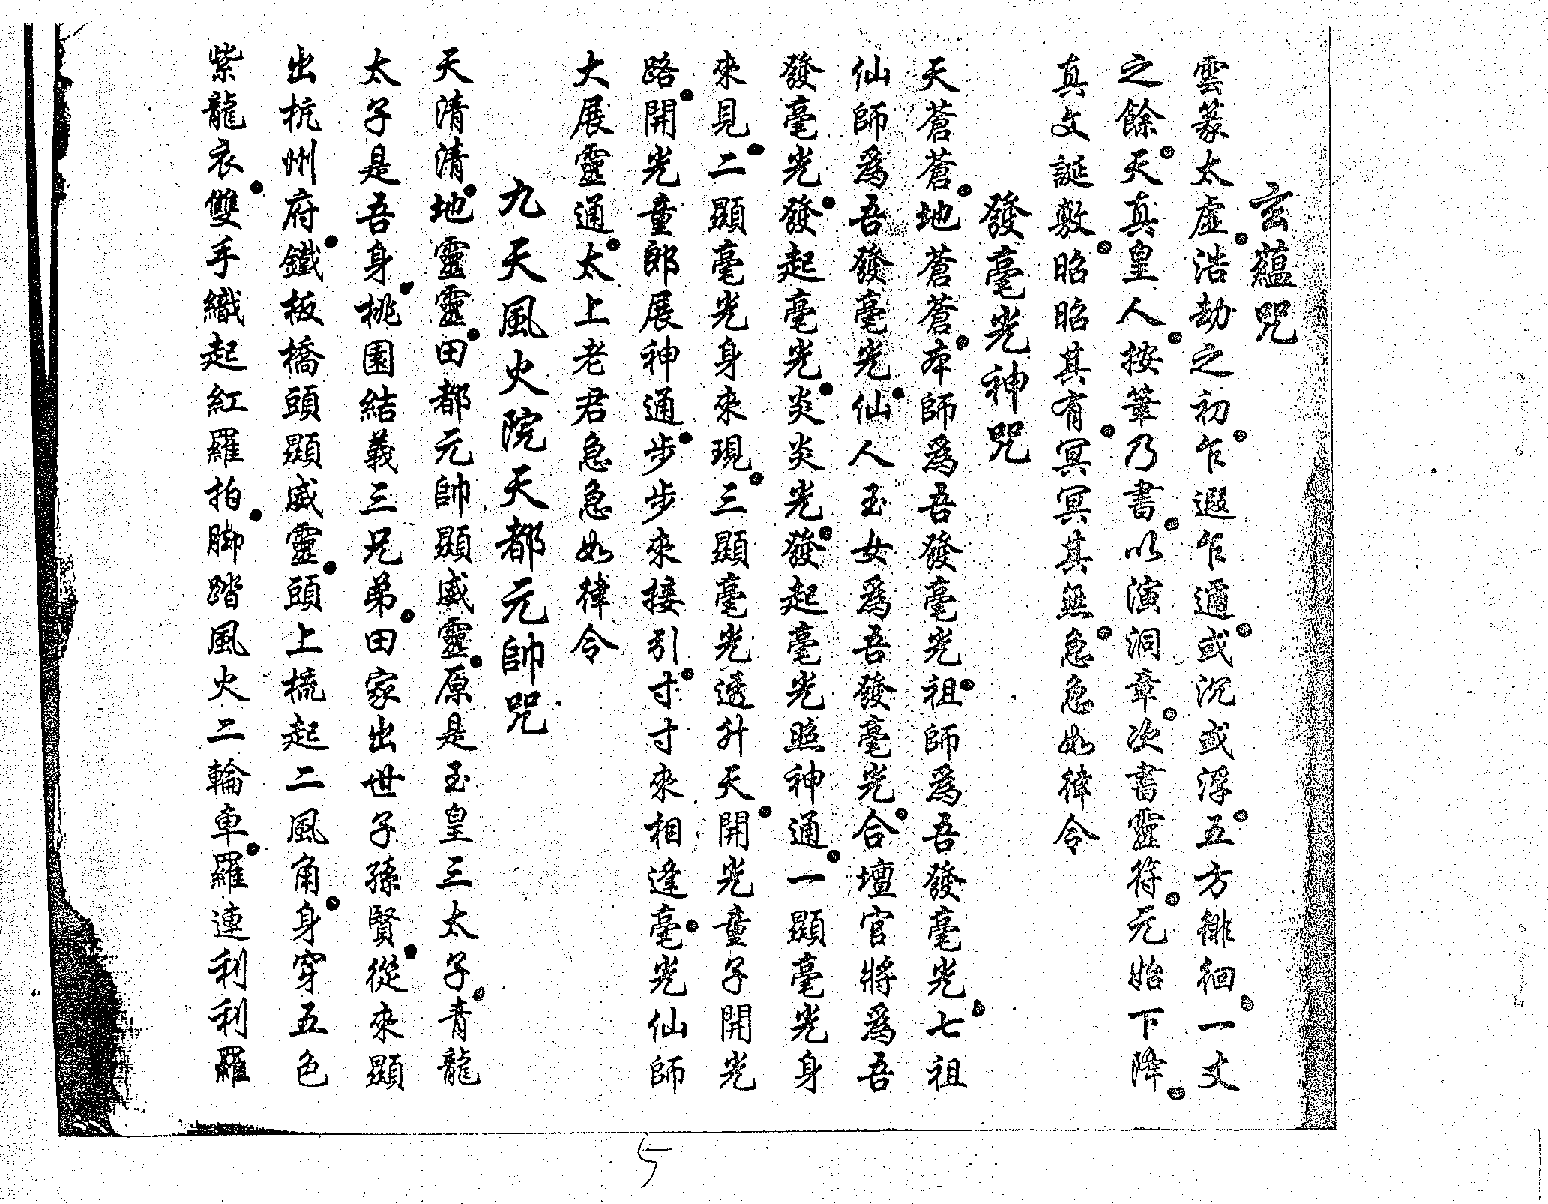 玄蘊咒
雲篆太虛浩劫之初乍遐乍邇或沉或浮五方徘徊一丈
之餘天真皇人按筆乃書以演洞章次書靈符元始下降
真文誕敷昭昭其有冥冥其無急急如律令
發毫光神咒
天蒼蒼地蒼蒼本師為吾發毫光祖師為吾發毫光七祖
仙師為吾發毫光仙人玉女為吾發毫光合壇官將為吾
發毫光發起毫光炎炎光發起毫光照神通一顯毫光身
來見二顯毫光身來現三顯毫光透升天開光童子開光
路開光童郎展神通步步來接引寸寸來相逢毫光仙師
大展靈通太上老君急急如律令
九天風火院天都元帥咒
天清清地靈靈田都元帥顯威靈原是玉皇三太子青龍
太子是吾身桃園結義三兄弟田家出世子孫賢從來顯
出杭州府鐵板橋頭顯威靈頭上梳起二風角身穿五色
紫龍衣雙手織起紅羅拍脚踏風火二輪車羅連利利羅
5